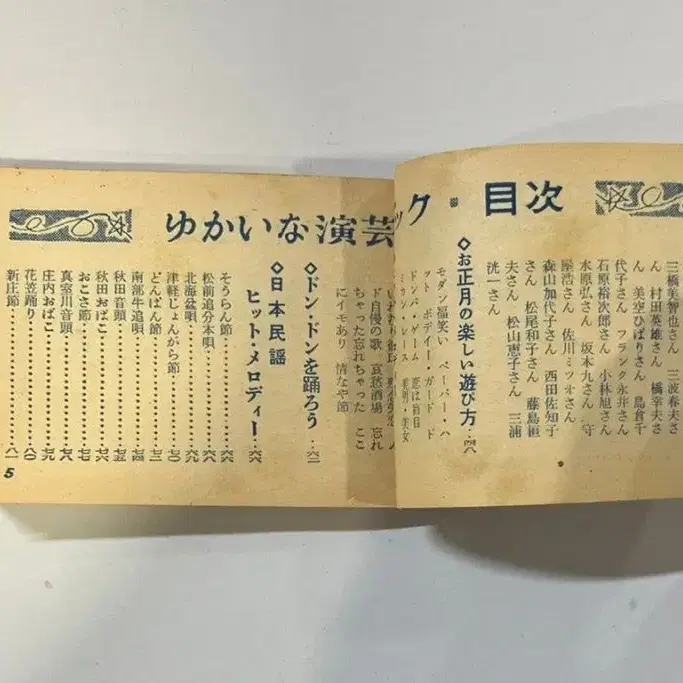 ック・目次
三橋美智也さん 三波春夫さ
ん 村田英雄さん 橋幸夫さ
ん 美空ひばりさん 島倉千
代子さん フランク永井さん
石原裕次郎さん 小林旭さん
水原弘さん 坂本九さん 守
屋浩さん 佐川ミツオさん
森山加代子さん 西田佐知子
さん 松尾和子さん 藤島桓
夫さん 松山恵子さん 三浦
洸一さん
◇お正月の楽しい遊び方…四八
モダン福笑い ペーパー・ハ
ット ボディー・ガード ド
ンパ・ゲーム 恋は盲目
ミカン・レース 美男・美女
ゆかいな演芸
ド自慢の歌 哀愁酒場 忘れ
ちゃった忘れちゃった ここ
にイモあり 情なや節
◇ドン・ドンを踊ろう…六二
◇日本民謡
ヒット・メロディー…六六
そうらん節…六六
松前追分本唄…六八
北海盆唄…六九
津軽じょんがら節…七二
どんぱん節…七三
南部牛追唄…七四
秋田音頭…七五
秋田おばこ…七六
おこさ節…七七
真室川音頭…七八
庄内おばこ…七九
花笠踊り…八〇
新庄節…八一
5